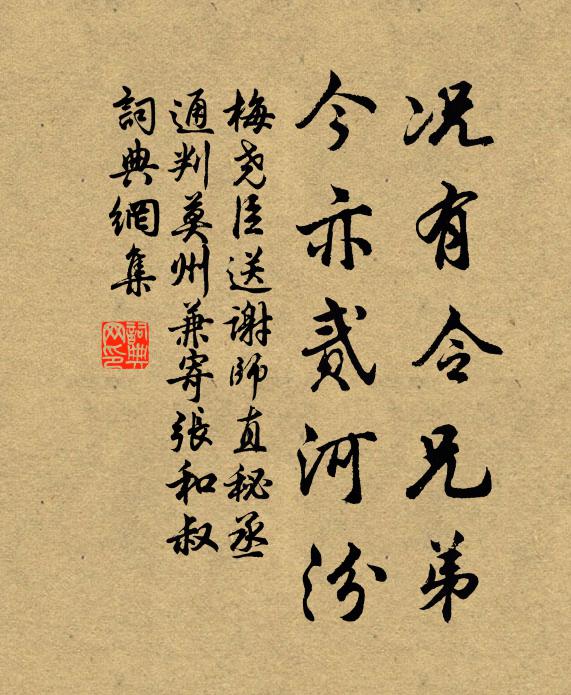 况有令兄弟
今亦贰河汾
梅尧臣送谢师直秘丞
通判莫州兼寄張和叔
詞典網集
詞典网印